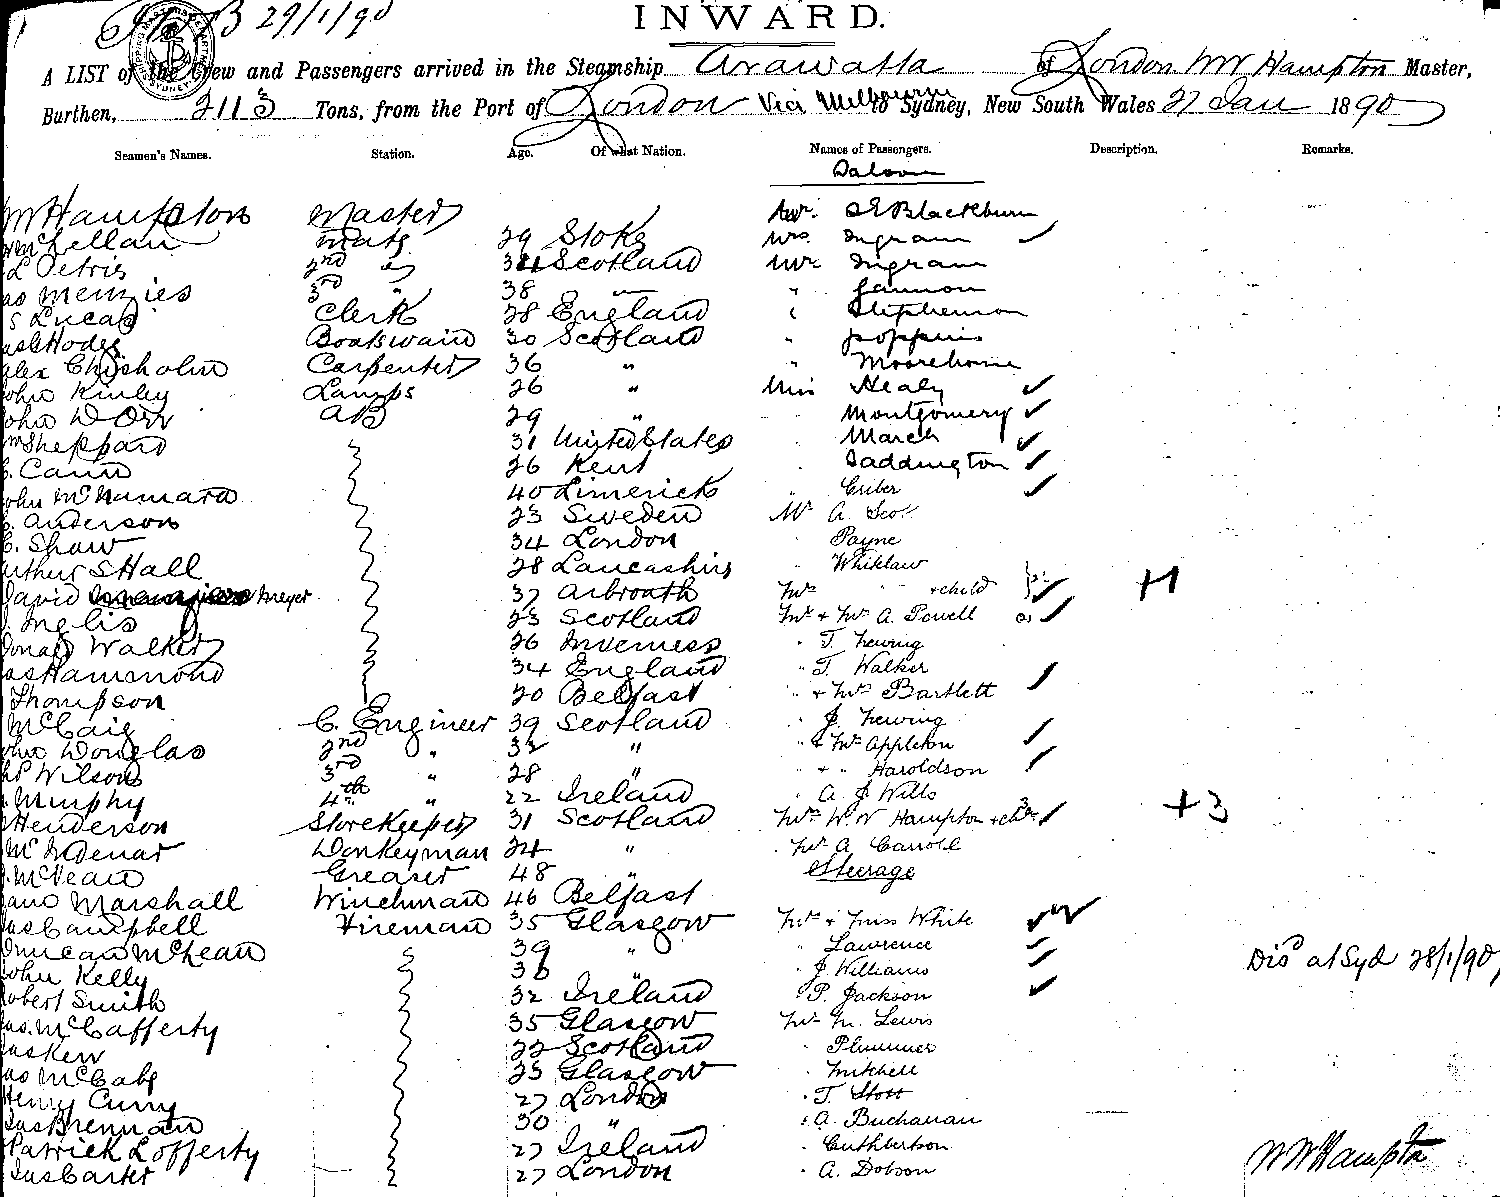 29/1/90
INWARD.
A LIST of the Crew and Passengers arrived in the Steamship Arawatta of London WW Hampton Master,
Burthen, 2113 Tons, from the Port of London Via Melbourne to Sydney, New South Wales 27 Jan 1890
Seamen's Names. Station. Age. Of what Nation. Names of Passengers. Description. Remarks.
Saloon
Hampton Master Blackburn
McLellan Mate 29 Stoke Mrs. Ingram
L Petrie 2nd " 34 Scotland Mr Ingram
Menzies 3rd " 38 " " Gannon
S Lucas Clerk 28 England " Stephenson
Hodge Boatswain 30 Scotland " Poppins
Alex Chisholm Carpenter 36 "
John Kinley Lamps 26 " Miss Healy
John W Orr AB 29 " Montgomery
Wm Sheppard 31 United States March
Cann 26 Kent Saddington
John McNamara 40 Limerick
Anderson 23 Sweden Mr A Scott
Shaw 34 London Payne
Arthur S Hall 28 Lancashire Whitelaw
David Meyer 37 Arbroath Mrs " + child +1
Inglis 23 Scotland Mr + Mrs A. Powell
Donald Walker 26 Inverness " T.
Hammond 34 England " T. Walker
Thompson 20 Belfast " + Mrs Bartlett
McCaig C. Engineer 39 Scotland " J.
John Douglas 2nd " 32 " " + Mrs Appleton
Wilson 3rd " 28 " " + " Haroldson
Murphy 4th " 22 Ireland " A J Wills
Henderson Storekeeper 31 Scotland Mrs W W Hampton + 3 +3
Donkeyman 24 " Mrs A Carroll
McVean Greaser 48 " Steerage
Marshall Winchman 46 Belfast
Jas Campbell Fireman 35 Glasgow Mrs + Miss White
Duncan McLean 39 " " Lawrence Disd at Syd 28/1/90
John Kelly 36 " " J Williams
Robert Smith 32 Ireland " P. Jackson
Jas. McCafferty 35 Glasgow Mr M. Lewis
Askew 22 Scotland " Plummer
Jas McCabe 23 Glasgow " Mitchell
Henry Curry 27 London " T. Stott
Jas Brennan 30 " " A. Buchanan
Patrick Lofferty 27 Ireland " Cuthbertson
Jas Carter 27 London " A. Dobson
WW Hampton